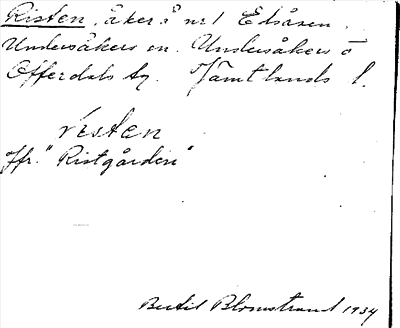 Risten, åker å nr 1 Edsåsen.
Undersåkers sn. Undersåkers o
Offerdals tg. Jämtlands l.
risten
Jfr. "Ristgården"
Bertil Blomstrand 1934